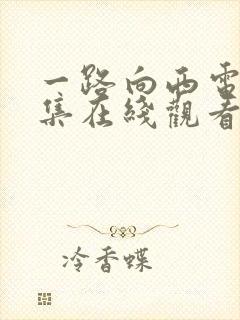 一路向西電
集在綫觀看
冷香蝶